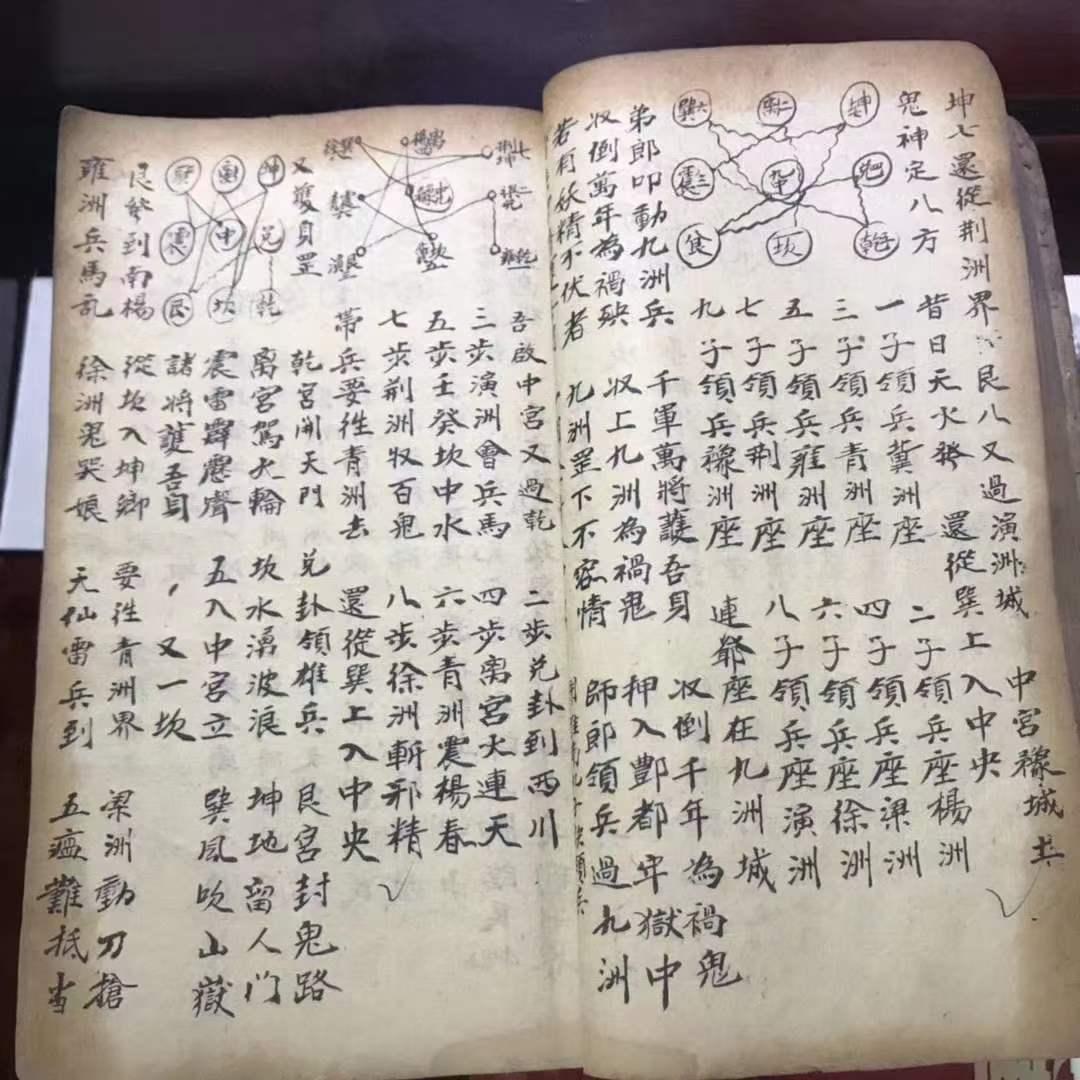 坤七還從荆洲界 艮八又過演洲城 中宮襐城共
鬼神定八方 昔日天火發 還從巽上入中央
一子領兵冀洲座 二子領兵座楊洲
三子領兵青洲座 四子領兵座梁洲
五子領兵雍洲座 六子領兵座徐洲
七子領兵荆洲座 八子領兵座演洲
九子領兵襐洲座 連爺座在九洲城
巽六 離二 坤
震三 中 兌
坎 乾
弟郎叩動九洲兵 千軍萬將護吾身 收倒千年為禍鬼
收倒萬年為禍殃 收上九洲為禍鬼 押入酆都年獄中
若有妖精不伏者 九洲罡下不容情 師郎領兵過九洲
吾啟中宮又過乾 二步兌卦到西川
三步演洲會兵馬 四步离宮火連天
五步壬癸坎中水 六步青洲震楊春
七步荆洲收百鬼 八步徐洲斬邪精
帶兵要徃青洲去 還從巽上入中央
又護身罡
乾宮開天門 兌卦領雄兵 艮宮封鬼路
离宮駕火輪 坎水湧波浪 坤地留人门
震雷霹靂聲 五入中宮立 巽風吹山嶽
諸將護吾身 又一坎
坤
震 中 兌
艮 坎 乾
艮發到南楊 從坎入坤鄉 要徃青洲界 梁洲動刀搶
雍洲兵馬乱 徐洲鬼哭娘 天仙雷兵到 五瘟難抵当